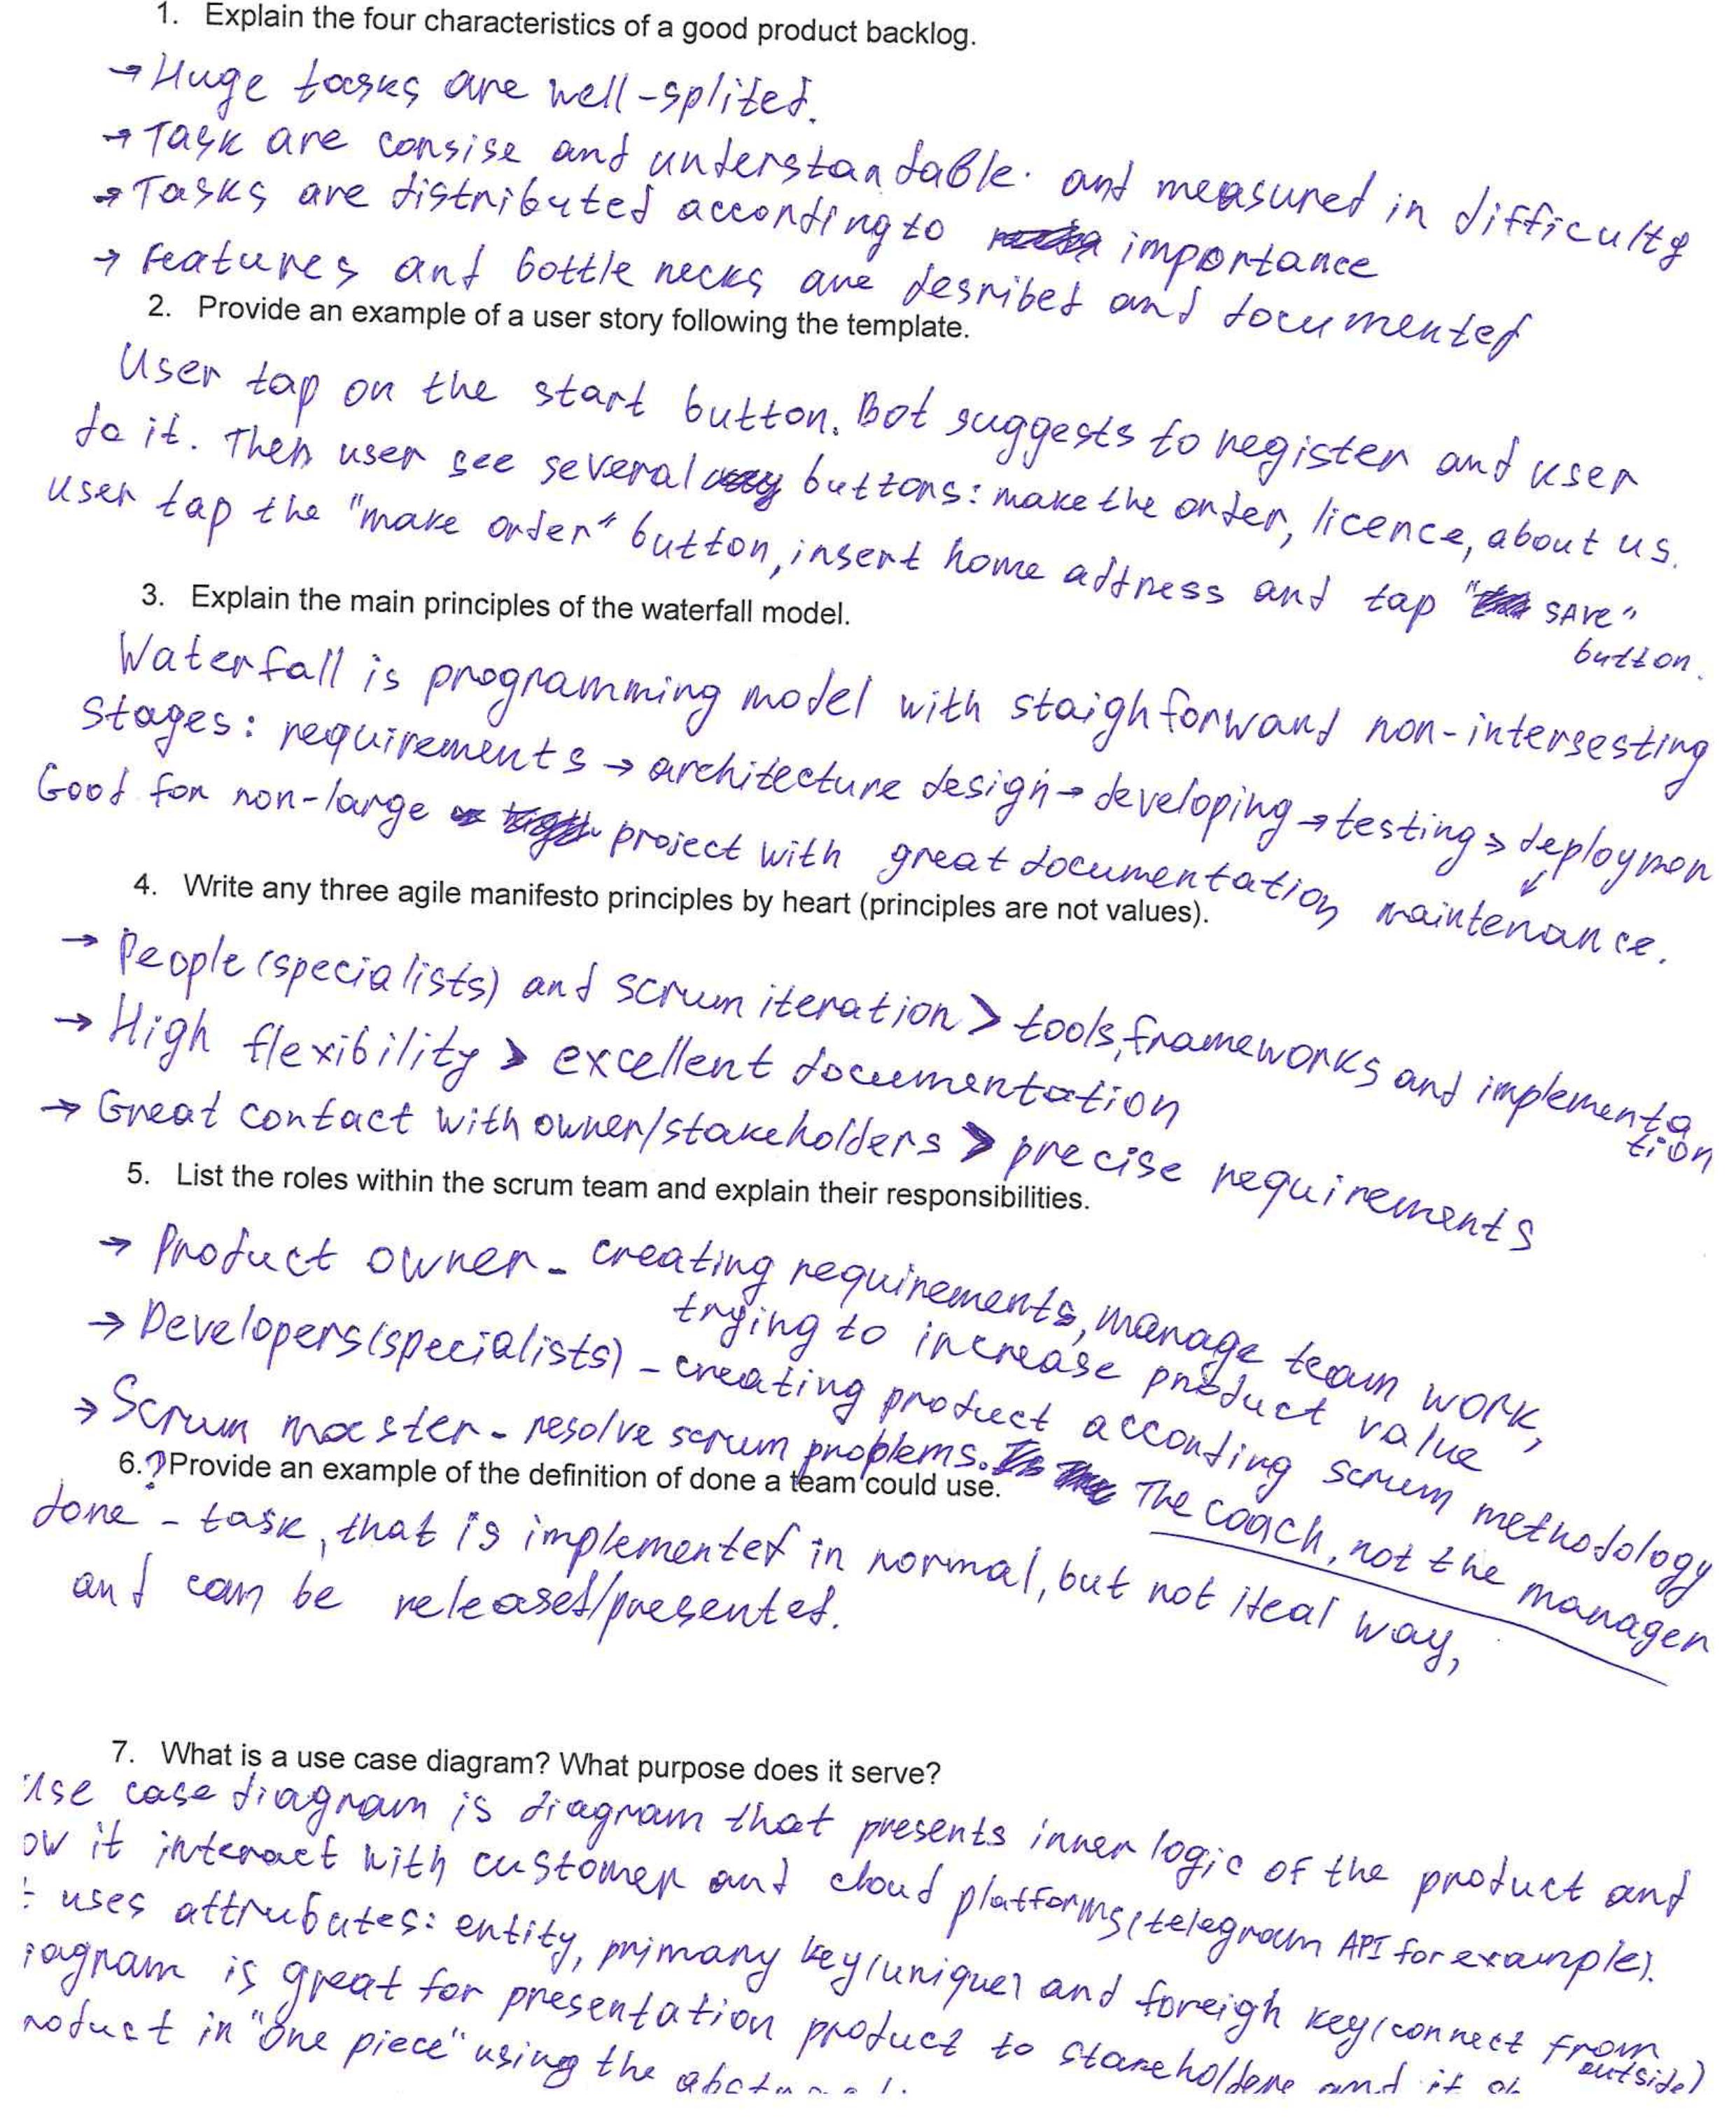 1. Explain the four characteristics of a good product backlog.
→ Huge tasks are well-splited.
→ Task are consise and understandable. and measured in difficulty
→ Tasks are distributed according to importance
→ Features and bottle necks are desribed and documented
2. Provide an example of a user story following the template.
User tap on the start button. Bot suggests to register and user
do it. Then user see several buttons: make the order, licence, about us.
User tap the "make order" button, insert home address and tap "SAve"
button.
3. Explain the main principles of the waterfall model.
Waterfall is programming model with staighforward non-intersesting
Stages: requirements → architecture design → developing → testing → deploymen
→ maintenance.
Good for non-large project with great documentation
4. Write any three agile manifesto principles by heart (principles are not values).
→ People (specialists) and scrum iteration > tools, frameworks and implementa
tion
→ High flexibility > excellent documentation
→ Great contact with owner/stakeholders > precise requirements
5. List the roles within the scrum team and explain their responsibilities.
→ Product owner - creating requirements, manage team work,
trying to increase product value
→ Developers (specialists) - creating product according scrum methodology
→ Scrum master - resolve scrum problems. The coach, not the manager
6. ? Provide an example of the definition of done a team could use.
done - task, that is implemented in normal, but not ideal way,
and can be released/presented.
7. What is a use case diagram? What purpose does it serve?
Use case diagram is diagram that presents inner logic of the product and
ow it interact with customer and cloud platforms (telegram API for example).
uses attrubutes: entity, primary key (unique) and foreigh key (connect from
outside)
iagram is great for presentation product to stakeholders and it
roduct in "one piece" using the